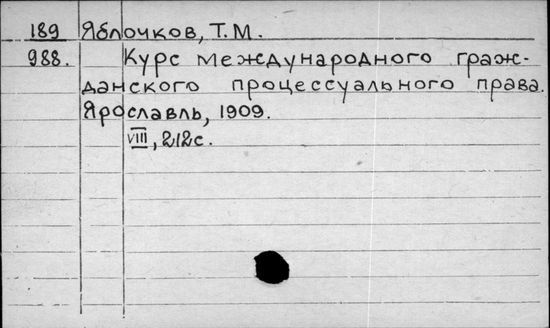 189 Яблочков, Т.М.
988. Курс международного граж-
данского процессуального права.
Ярославль, 1909.
VIII, 212с.